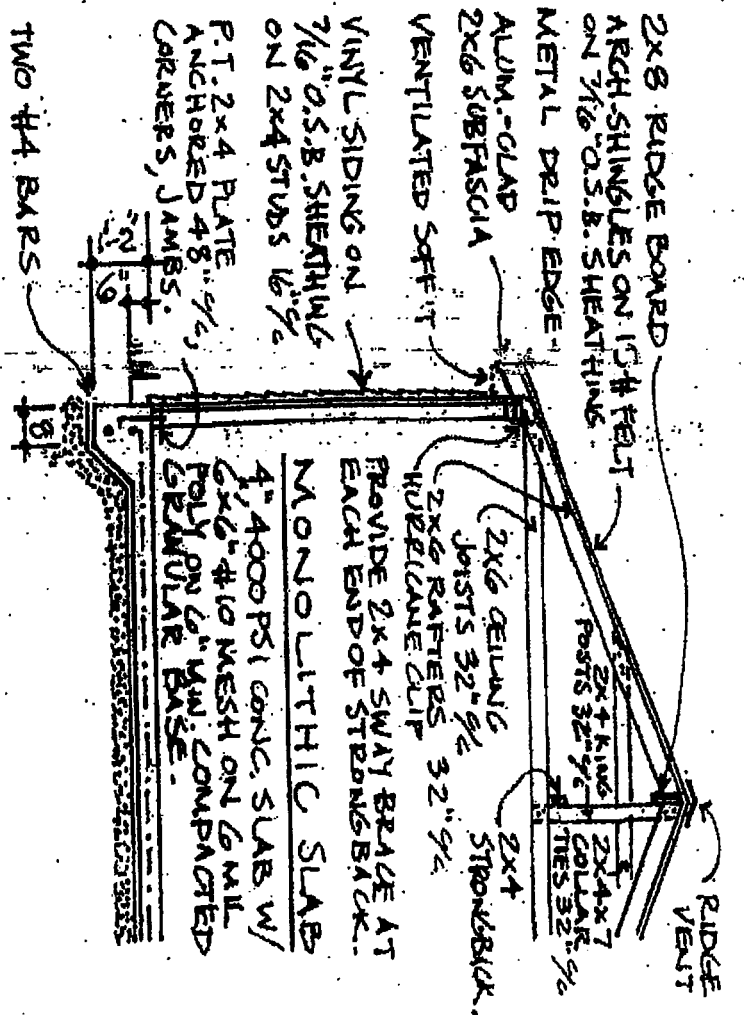 2X8 RIDGE BOARD
ARCH-SHINGLES ON 15# FELT
ON 7/16" O.S.B. SHEATHING.
METAL DRIP EDGE
ALUM.-CLAD
2X6 SUBFASCIA
VENTILATED SOFFIT
VINYL SIDING ON
7/16" O.S.B. SHEATHING
ON 2X4 STUDS 16" O/C
P.T. 2X4 PLATE
ANCHORED 48" O/C,
CORNERS, JAMBS.
TWO #4 BARS
12"
6"
8"
RIDGE
VENT
2X4X7
COLLAR
TIES 32" O/C
2X4 KING
POSTS 32" O/C
2X4
STRONGBACK.
2X6 CEILING
JOISTS 32" O/C
2X6 RAFTERS 32" O/C
HURRICANE CLIP
PROVIDE 2X4 SWAY BRACE AT
EACH END OF STRONGBACK.
MONOLITHIC SLAB
4", 4000 PSI CONC. SLAB W/
6X6" #10 MESH ON 6 MIL
POLY ON 6" MIN. COMPACTED
GRANULAR BASE.